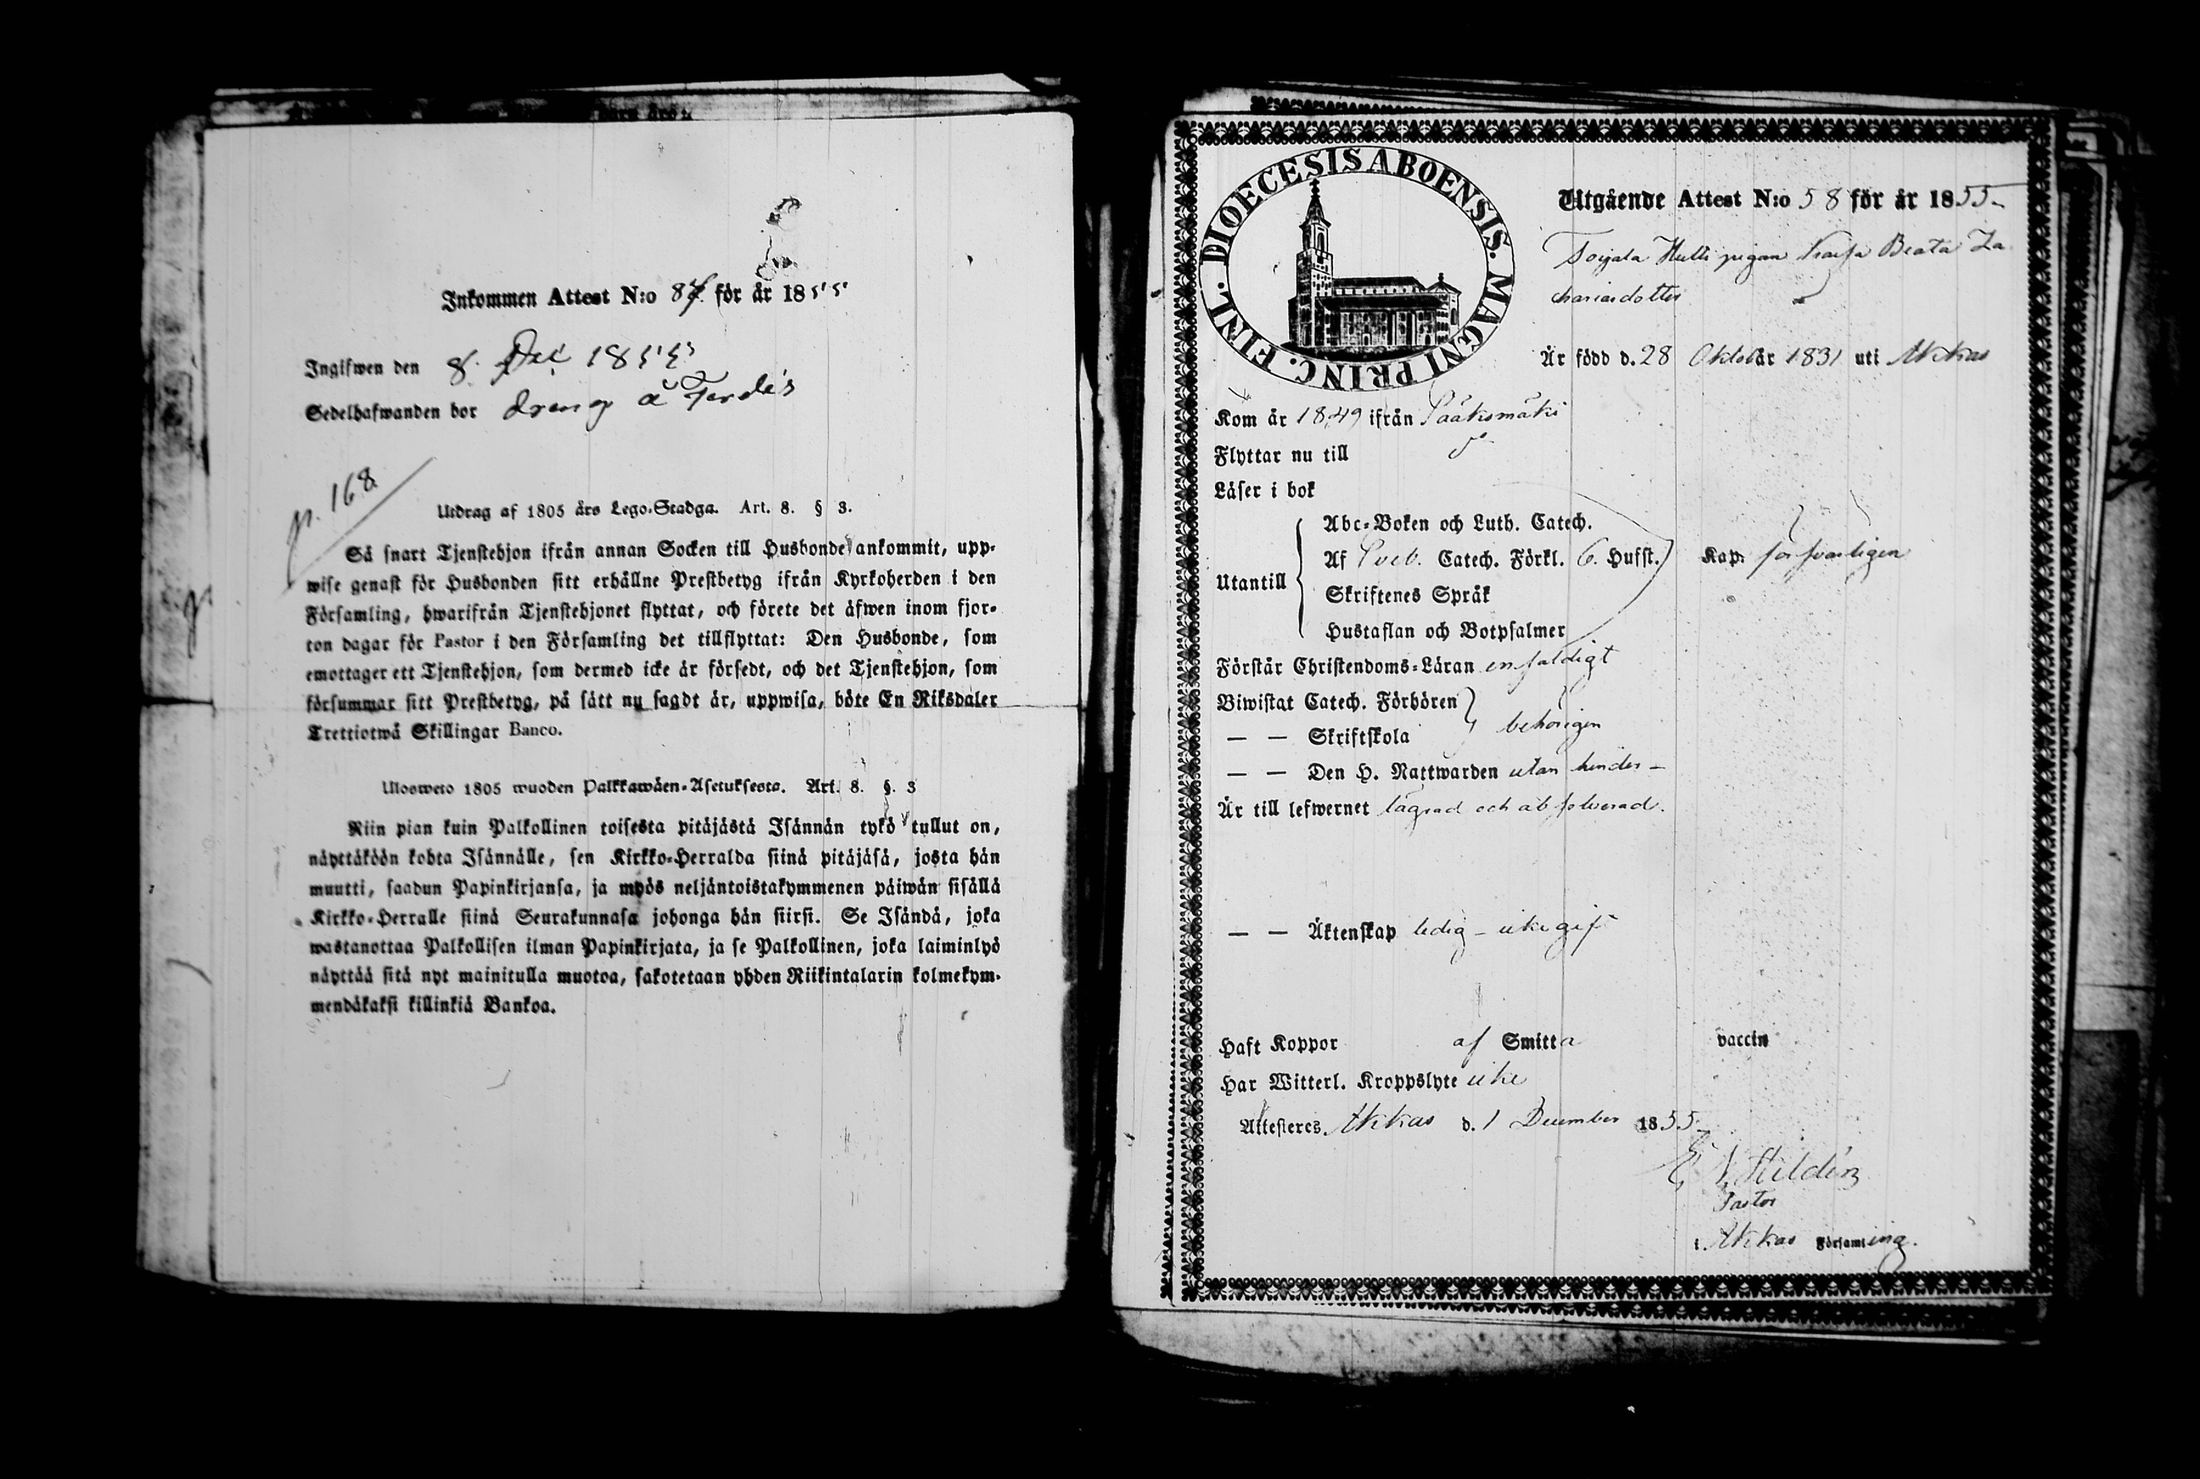 Inkommen Attest N:o 87. för år 1855
Ingifwen den 8. Dec 1855
Sedelhafwanden bor dreng å
p. 168.
Utdrag af 1805 års Lego-Stadga. Art. 8. § 3.
Så snart Tjenstehjon ifrån annan Socken till Husbonde ankommit, upp-
wise genast för Husbonden sitt erhållne Prestbetyg ifrån Kyrkoherden i den
Församling, hwarifrån Tjenstehjonet flyttat, och förete det äfwen inom fjor-
ton dagar för Pastor i den Församling det tillflyttat: Den Husbonde, som
emottager ett Tjenstehjon, som dermed icke är försedt, och det Tjenstehjon, som
försummar sitt Prestbetyg, på sätt nu sagdt är, uppwisa, böte En Riksdaler
Trettiotwå Skillingar Banco.
Ulosweto 1805 wuoden Palkkawäen-Asetuksesta. Art. 8. §. 3
Niin pian kuin Palkollinen toisesta pitäjästä Isännän tykö tullut on,
näyttäköön kohta Isännälle, sen Kirkko-Herralda siinä pitäjäsä, josta hän
muutti, saadun Papinkirjansa, ja myös neljäntoistakymmenen päiwän sisällä
Kirkko-Herralle siinä Seurakunnasa johonga hän siirsi. Se Isändä, joka
wastanottaa Palkollisen ilman Papinkirjata, ja se Palkollinen, joka laiminlyö
näyttää sitä nyt mainitulla muotoa, sakotetaan yhden Riikintalarin kolmekym-
mendäkaksi killinkiä Bankoa.
DIOECESIS ABOENSIS. MAGNI PRINC. FINL.
Utgående Attest N:o 58 för år 1855
Toijala Hulli pigan Beata Za
chariasdotter
Är född d. 28 Oktob år 1831 uti Akkas
Kom år 1849 ifrån Pääksmäki
Flyttar nu till d°
Läser i bok
Abc-Boken och Luth. Catech.
Utantill
Af Sveb. Catech. Förkl. 6. Hufst. Kap. försvarligen
Skriftenes Språk
Hustaflan och Botpsalmer
Förstår Christendoms-Läran enfaldigt
Biwistat Catech. Förhören
— — Skriftskola behörigen
— — Den H. Nattwarden utan hinder
Är till lefwernet lägrad och absolverad.
— — Äktenskap ledig - icke gift
Haft Koppor af Smitta vaccin
Har Witterl. Kroppslyte icke
Attesteres Akkas d. 1 December 1855.
Hildén
Pastor
i Akkas Församling.